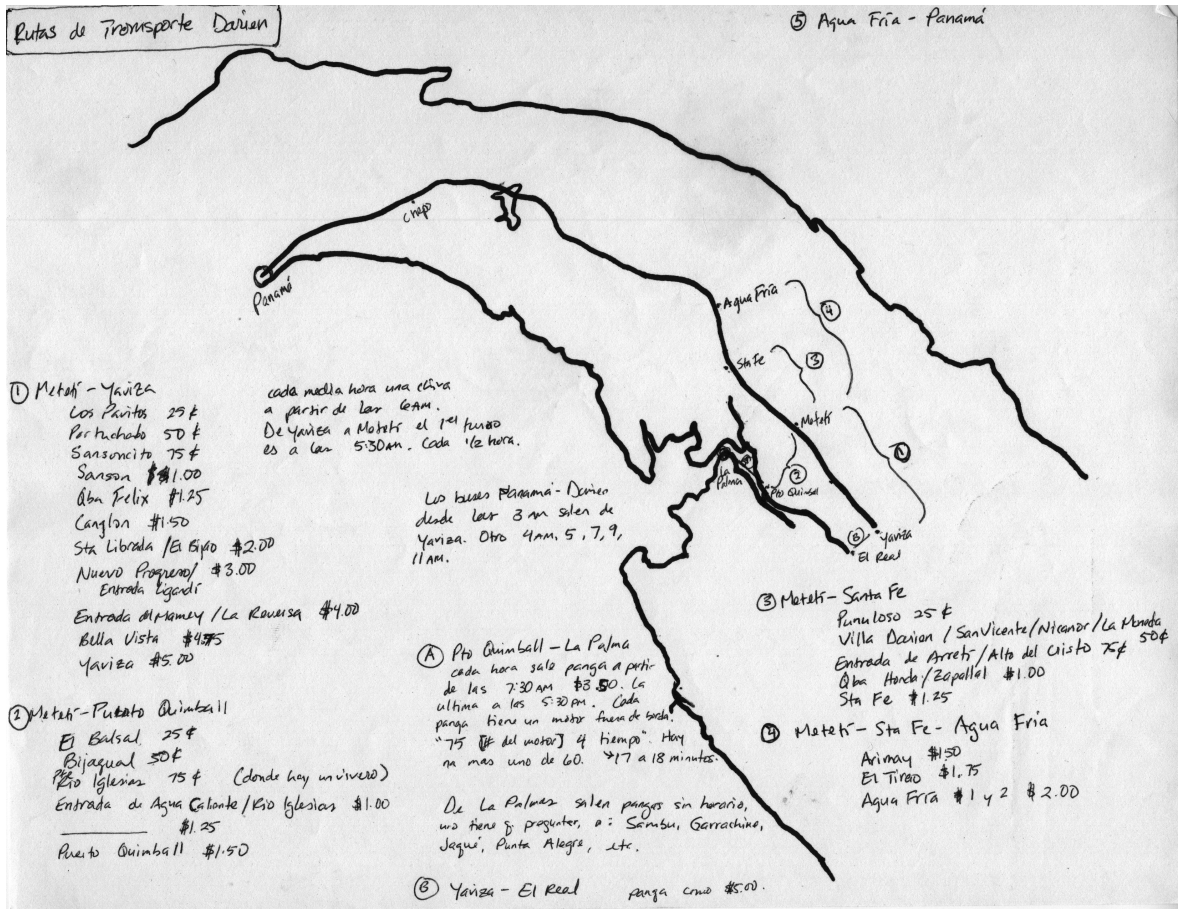 Rutas de Transporte Darien
⑤ Agua Fría - Panamá
Chepo
Panamá
Agua Fría
④
Sta Fe
③
Metetí
①
②
La
Palma
Pto Quimball
Yaviza
Ⓑ
El Real
① Metetí - Yaviza
Los Pavitos 25¢
Portuchado 50¢
Sansoncito 75¢
Sanson $1.00
Qba Felix $1.25
Canglon $1.50
Sta Librada / El Bijao $2.00
Nuevo Progreso/ $3.00
Entrada Ligandí
Entrada del Mamey / La Reversa $4.00
Bella Vista
Yaviza $5.00
cada media hora una chiva
a partir de las 6AM.
De Yaviza a Metetí el 1er turno
es a las 5:30AM. Cada 1/2 hora.
Los buses Panamá-Darien
desde las 3 AM salen de
Yaviza. Otro 4AM, 5, 7, 9,
11AM.
② Metetí - Puerto Quimball
El Balsal 25¢
Bijagual 50¢
Pte Rio Iglesias 75¢ (donde hay un vivero)
Entrada de Agua Caliente/Rio Iglesias $1.00
$1.25
Puerto Quimball $1.50
Ⓐ Pto Quimball - La Palma
cada hora sale panga a partir
de las 7:30AM $3.50. La
ultima a las 5:30PM. Cada
panga tiene un motor fuera de borda.
"75 [# del motor] 4 tiempo". Hay
na mas uno de 60. →17 a 18 minutos.
De La Palma salen pangas sin horario,
uno tiene q preguntar, a: Sambu, Garrachine,
Jaqué, Punta Alegre, etc.
Ⓑ Yaviza - El Real panga como $5.00.
③ Metetí - Santa Fe
Punuloso 25¢
Villa Darien / San Vicente/Nicanor/La Moneda 50¢
Entrada de Arretí/Alto del Cristo 75¢
Qba Honda/Zapallal $1.00
Sta Fe $1.25
④ Metetí - Sta Fe - Agua Fria
Arimay $1.50
El Tirao $1.75
Agua Fría #1 y 2 $2.00